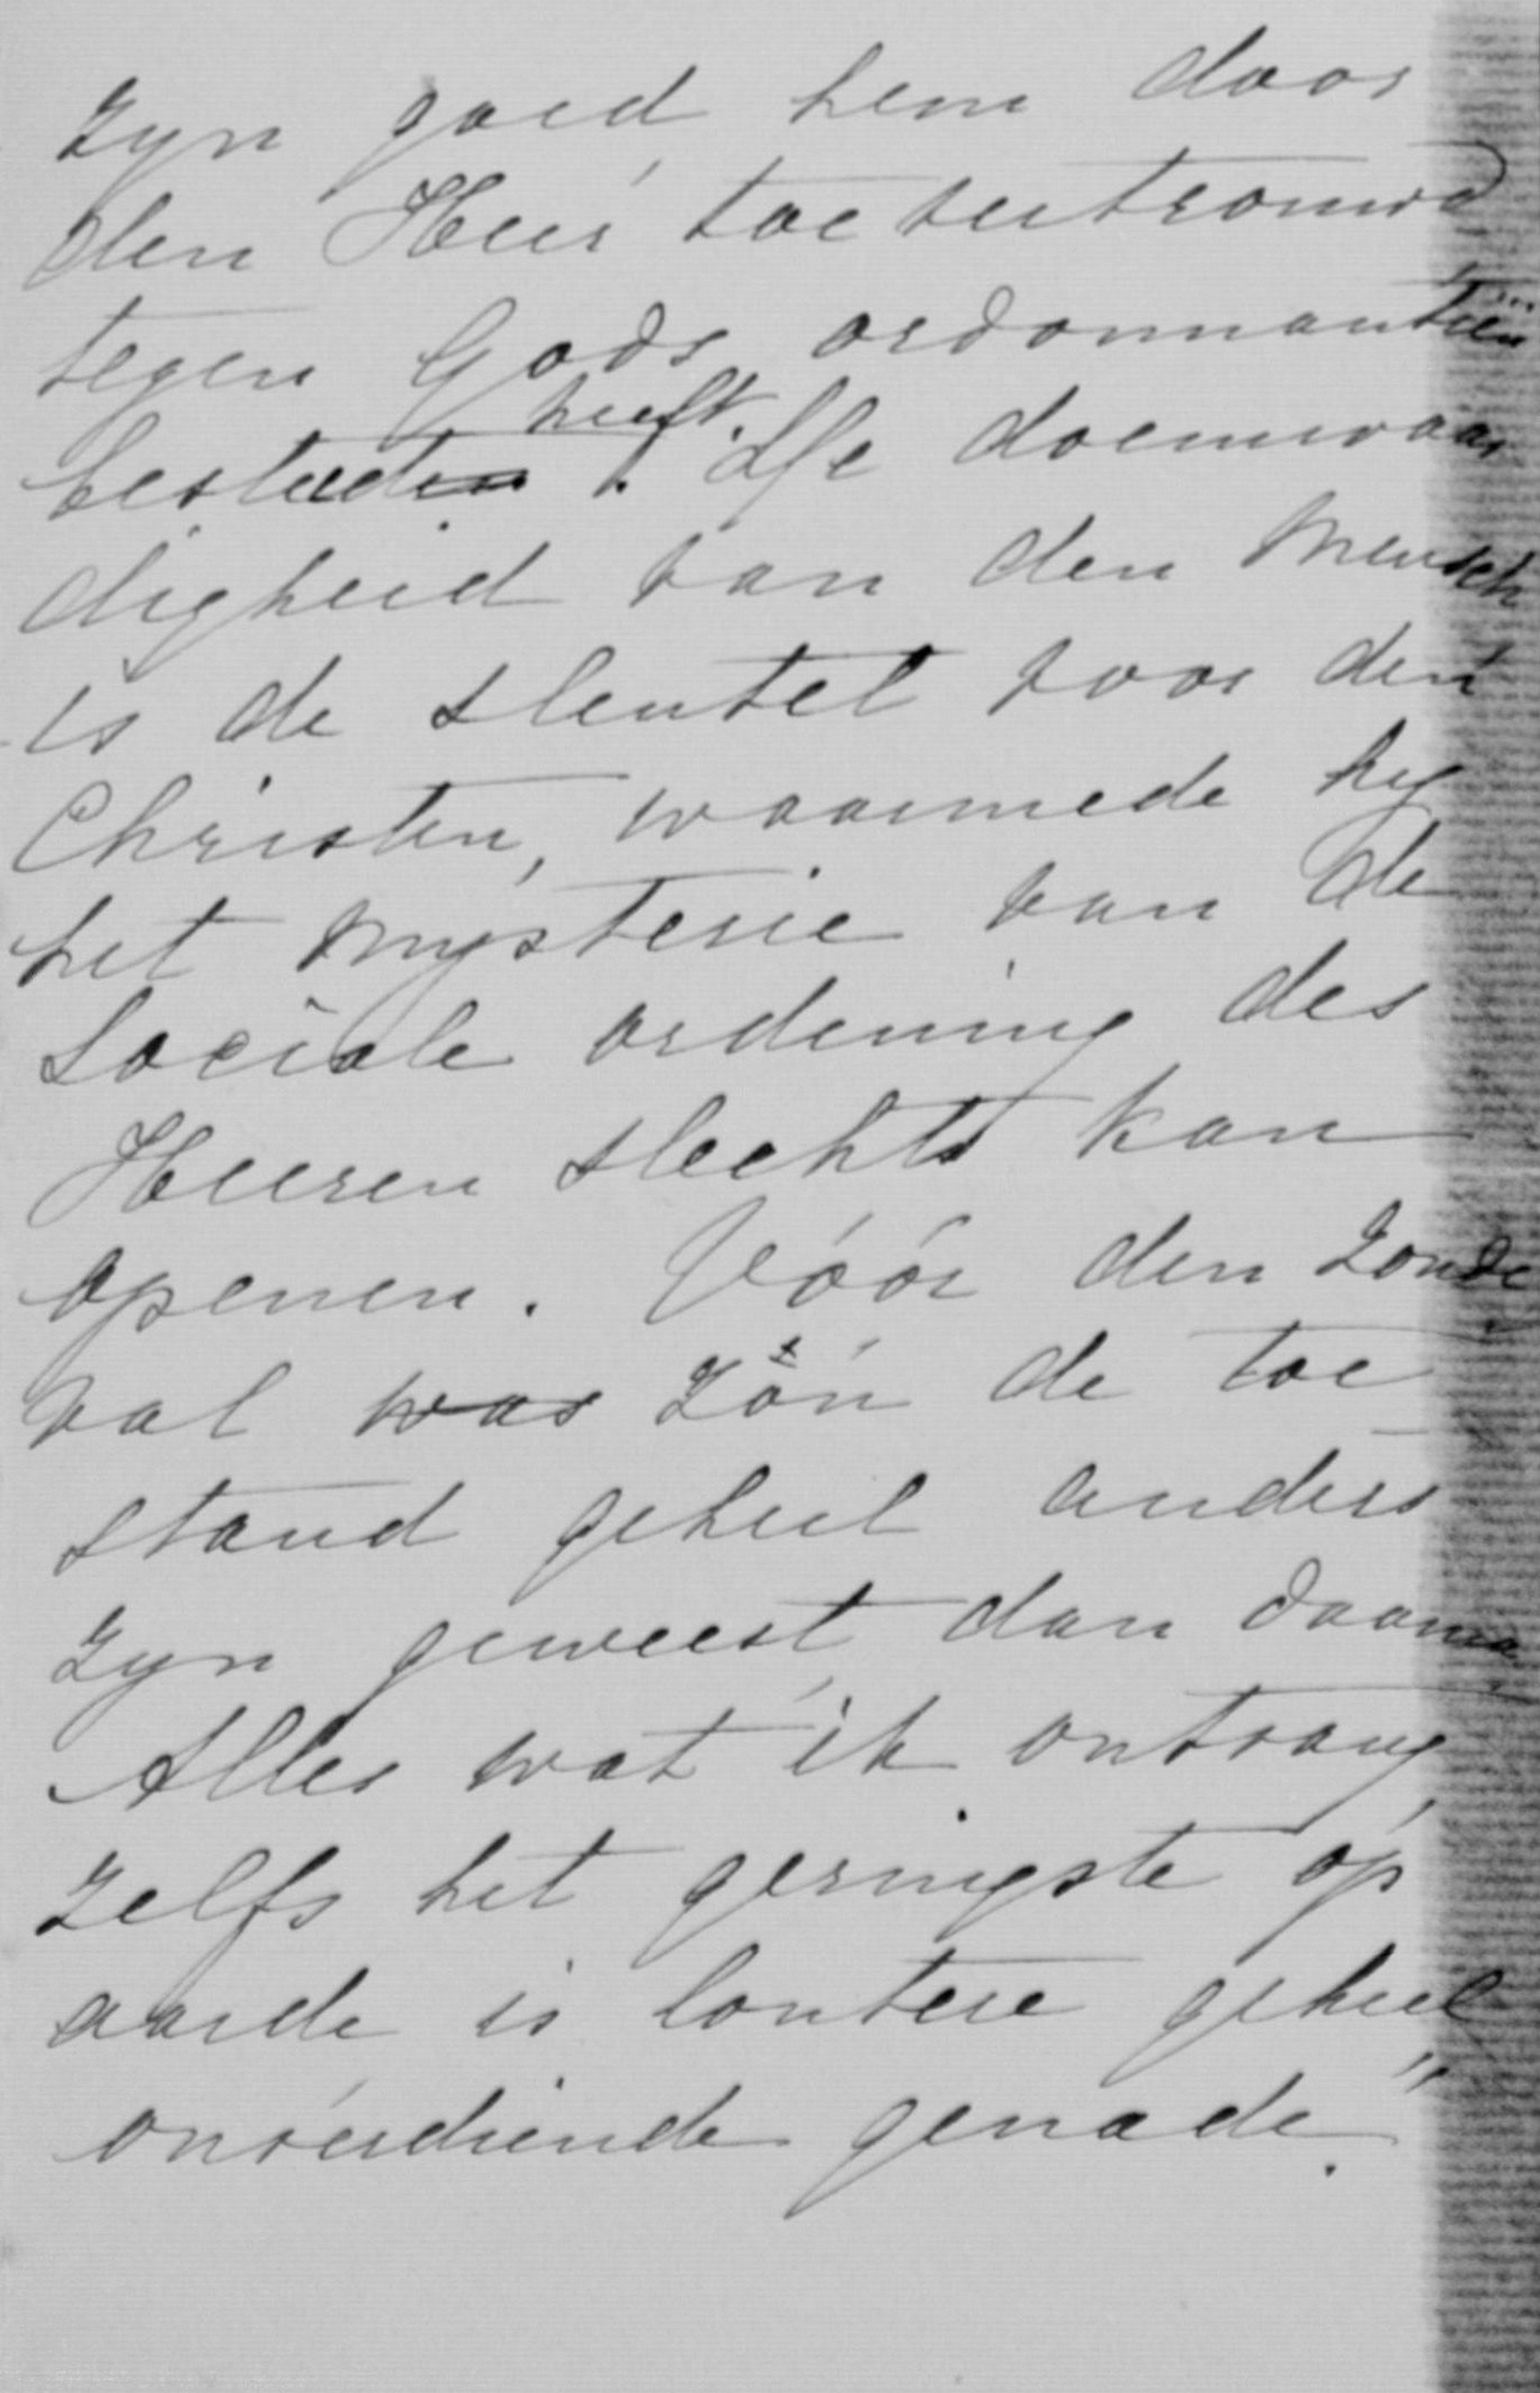 zyn goed hem door
den Heer toevertrouwd
tegen Gods ordonnantiën
besteed heeft. De doemwaar
digheid van den Mensch
is de sleutel voor den
Christen, waarmede hy
het mysterie van de
Sociale ordening des
Heeren slechts kan
openen. Vóór den Zonde
val was zou de toe
stand geheel anders
zyn geweest dan daarna.
Alles wat ik ontvang,
zelfs het geringste op
aarde is loutere geheel
onverdiende genade."